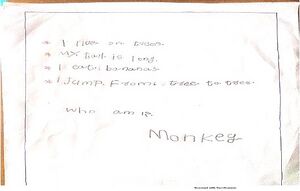 * I live on trees
* My tail is long.
* I eat bananas
* I Jump From tree to tree.
who am I
Monkey